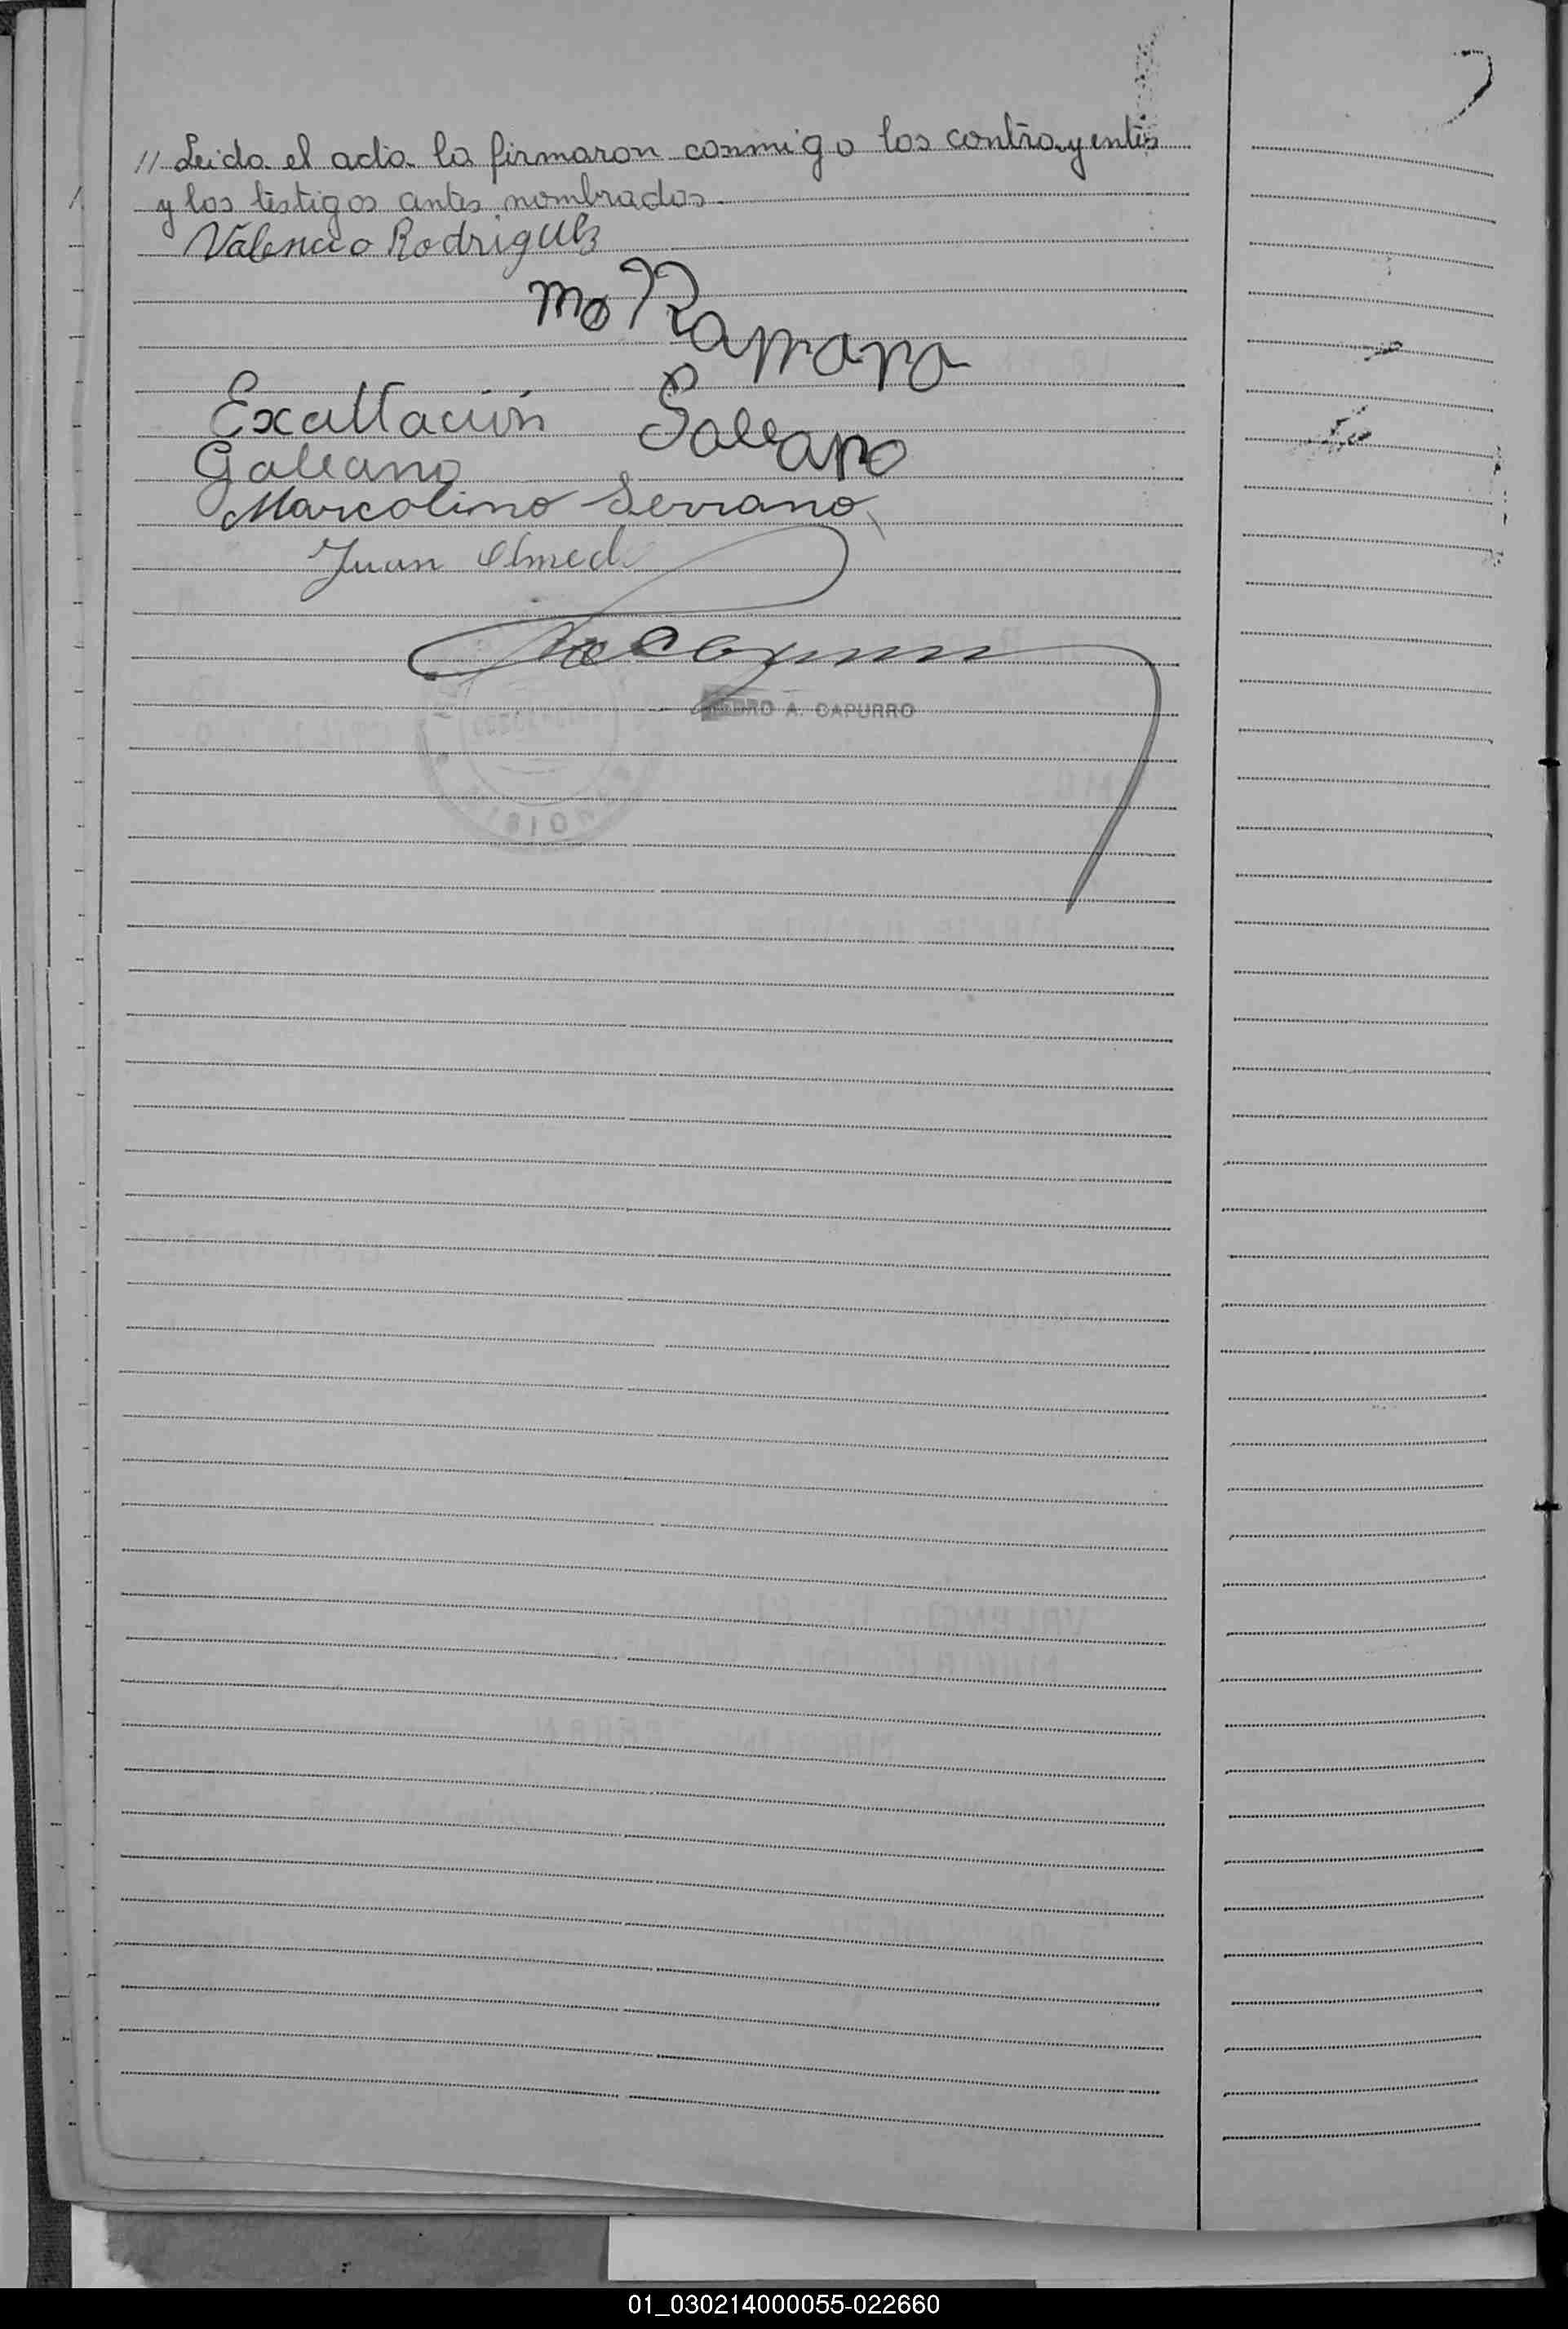 // Leida el acta la firmaron conmigo los contrayentes
y los testigos antes nombrados.
Valencio Rodriguez
Ma Ramona
Exaltación Galeano
Galeano
Marcolino Serrano
Juan Olmed
PEDRO A. CAPURRO
01_030214000055-022660